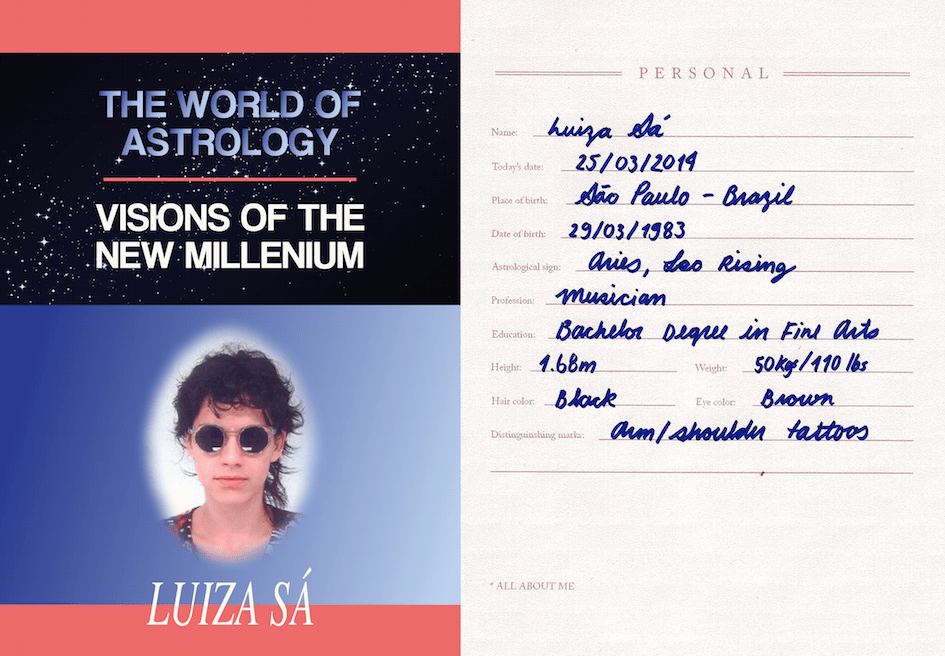 THE WORLD OF
ASTROLOGY
VISIONS OF THE
NEW MILLENIUM
LUIZA SÁ
PERSONAL
Name: Luiza Sá
Today's date: 25/03/2019
Place of birth: São Paulo - Brazil
Date of birth: 29/03/1983
Astrological sign: Aries, Leo Rising
Profession: Musician
Education: Bachelor Degree in Fine Arts
Height: 1.68m Weight: 50kgs/110 lbs
Hair color: Black Eye color: Brown
Distinguinshing marks: Arm/shoulder tattoos
* ALL ABOUT ME